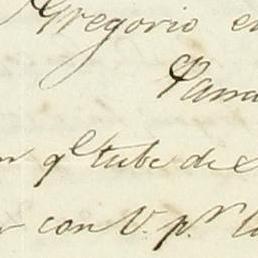 Gregorio e
Pana
n q.e tube de
r con V. p.r l